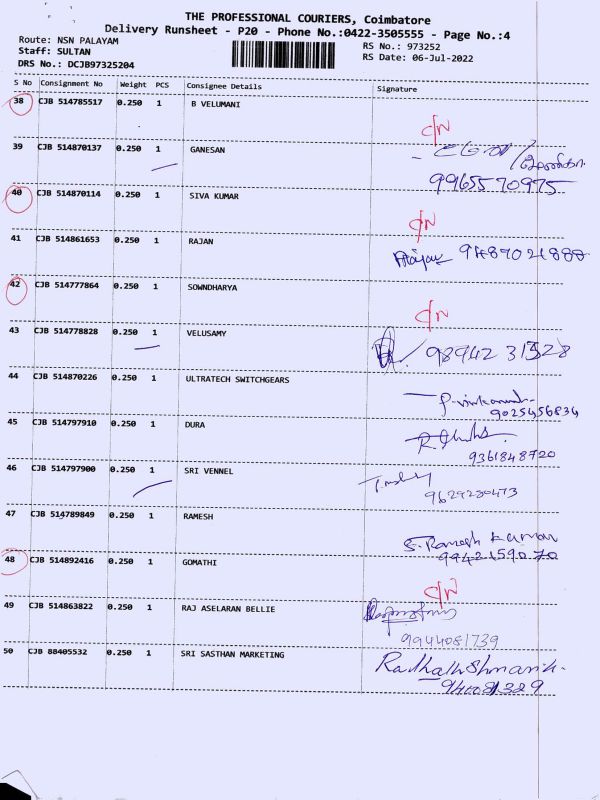 THE PROFESSIONAL COURIERS, Coimbatore
Delivery Runsheet - P20 - Phone No.:0422-3505555 - Page No.:4
Route: NSN PALAYAM
RS No.: 973252
Staff: SULTAN
RS Date: 06-Jul-2022
DRS No.: DCJB97325204
S No Consignment No Weight PCS Consignee Details Signature
38 CJB 514785517 0.250 1 B VELUMANI
C/N
39 CJB 514870137 0.250 1 GANESAN
9965570975
40 CJB 514870114 0.250 1 SIVA KUMAR
C/N
41 CJB 514861653 0.250 1 RAJAN
Rajan 9489021888
42 CJB 514777864 0.250 1 SOWNDHARYA
C/N
43 CJB 514778828 0.250 1 VELUSAMY
98942 31528
44 CJB 514870226 0.250 1 ULTRATECH SWITCHGEARS
9025456834
45 CJB 514797910 0.250 1 DURA
9361848720
46 CJB 514797900 0.250 1 SRI VENNEL
9629280473
47 CJB 514789849 0.250 1 RAMESH
S. Ramesh Kumar
9942159070
48 CJB 514892416 0.250 1 GOMATHI
C/N
49 CJB 514863822 0.250 1 RAJ ASELARAN BELLIE
9944081739
50 CJB 88405532 0.250 1 SRI SASTHAN MARKETING